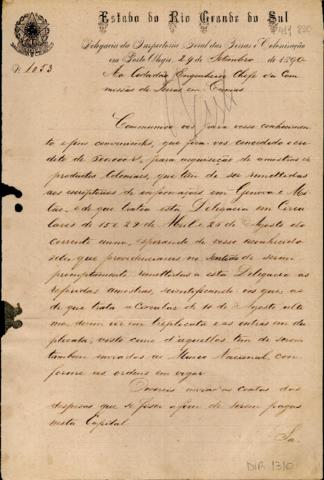 Estado do Rio Grande do Sul
Delegacia da Inspectoria Geral das Terras e Colonisação
em Porto Alegre, 29 de Setembro de 1890
N. 1053
Ao Cidadão Engenheiro Chefe da Com
missão de Terras em Caxias
Communico vos para vosso conhecimen
to e fins convenientes, que fica vos concedido o cre
dito de 300:000 R, para acquisição de amostras de
productos Coloniaes, que têm de ser remettidas
aos escriptorios de informações em Genova e Mi
lão, e de que tratou esta Delegacia em Circu
lares de 15 e 29 de Abril e 25 de Agosto do
corrente anno, esperando do vosso reconhecido
zelo, que providenciareis no sentido de serem
promptamente remettidas a esta Delegacia as
referidas amostras, scientificando vos que, as
de que trata a circular de 10 de Agosto ulti
mo devem vir em triplicata e as outras em du
plicata, visto como d'aquellas tem de serem
tambem enviadas ao Museu Nacional, con
forme as ordens em vigor.
Devereis enviar as contas das
despesas que se fizer a fim de serem pagas
nesta Capital.
Sa.
DIR. 1310